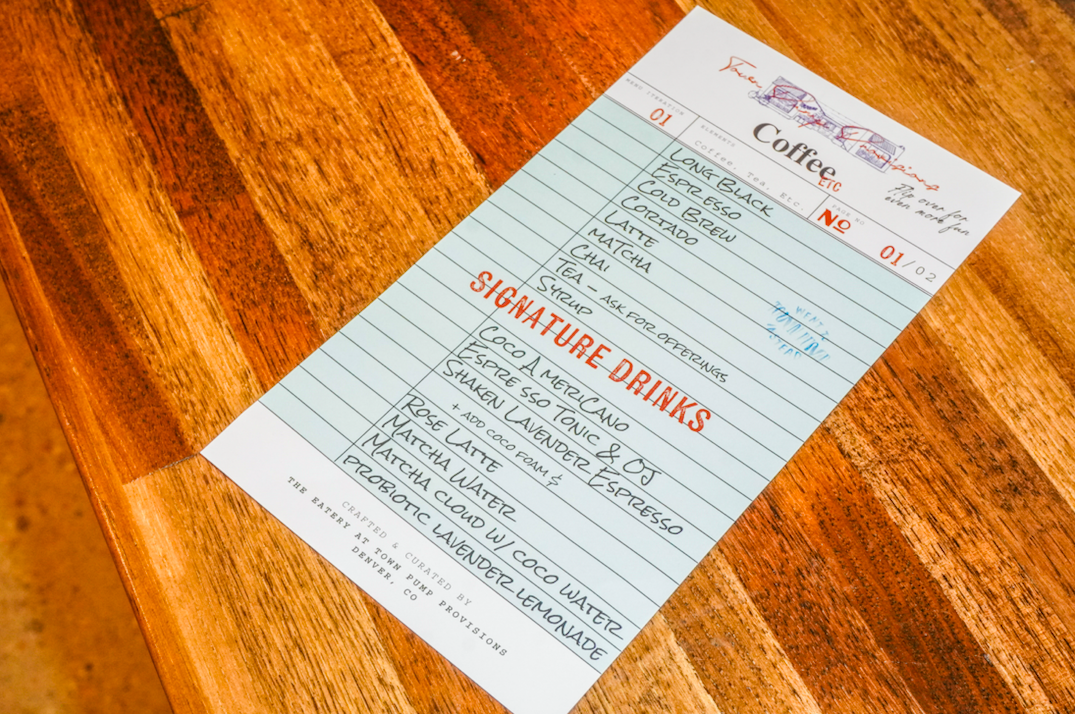 Town Pump Provisions
Coffee
ETC
Flip over for
even more fun
MENU ITERATION
01
ELEMENTS
Coffee, Tea, Etc.
PAGE NO
No
01/02
LONG BLACK
ESPRESSO
COLD BREW
CORTADO
LATTE
MATCHA
CHAI
TEA - ASK FOR OFFERINGS
SYRUP
SIGNATURE DRINKS
COCO AMERICANO
ESPRESSO TONIC & OJ
SHAKEN LAVENDER ESPRESSO
+ ADD COCO FOAM $
ROSE LATTE
MATCHA WATER
MATCHA CLOUD W/ COCO WATER
PROBIOTIC LAVENDER LEMONADE
CRAFTED & CURATED BY
THE EATERY AT TOWN PUMP PROVISIONS
DENVER, CO